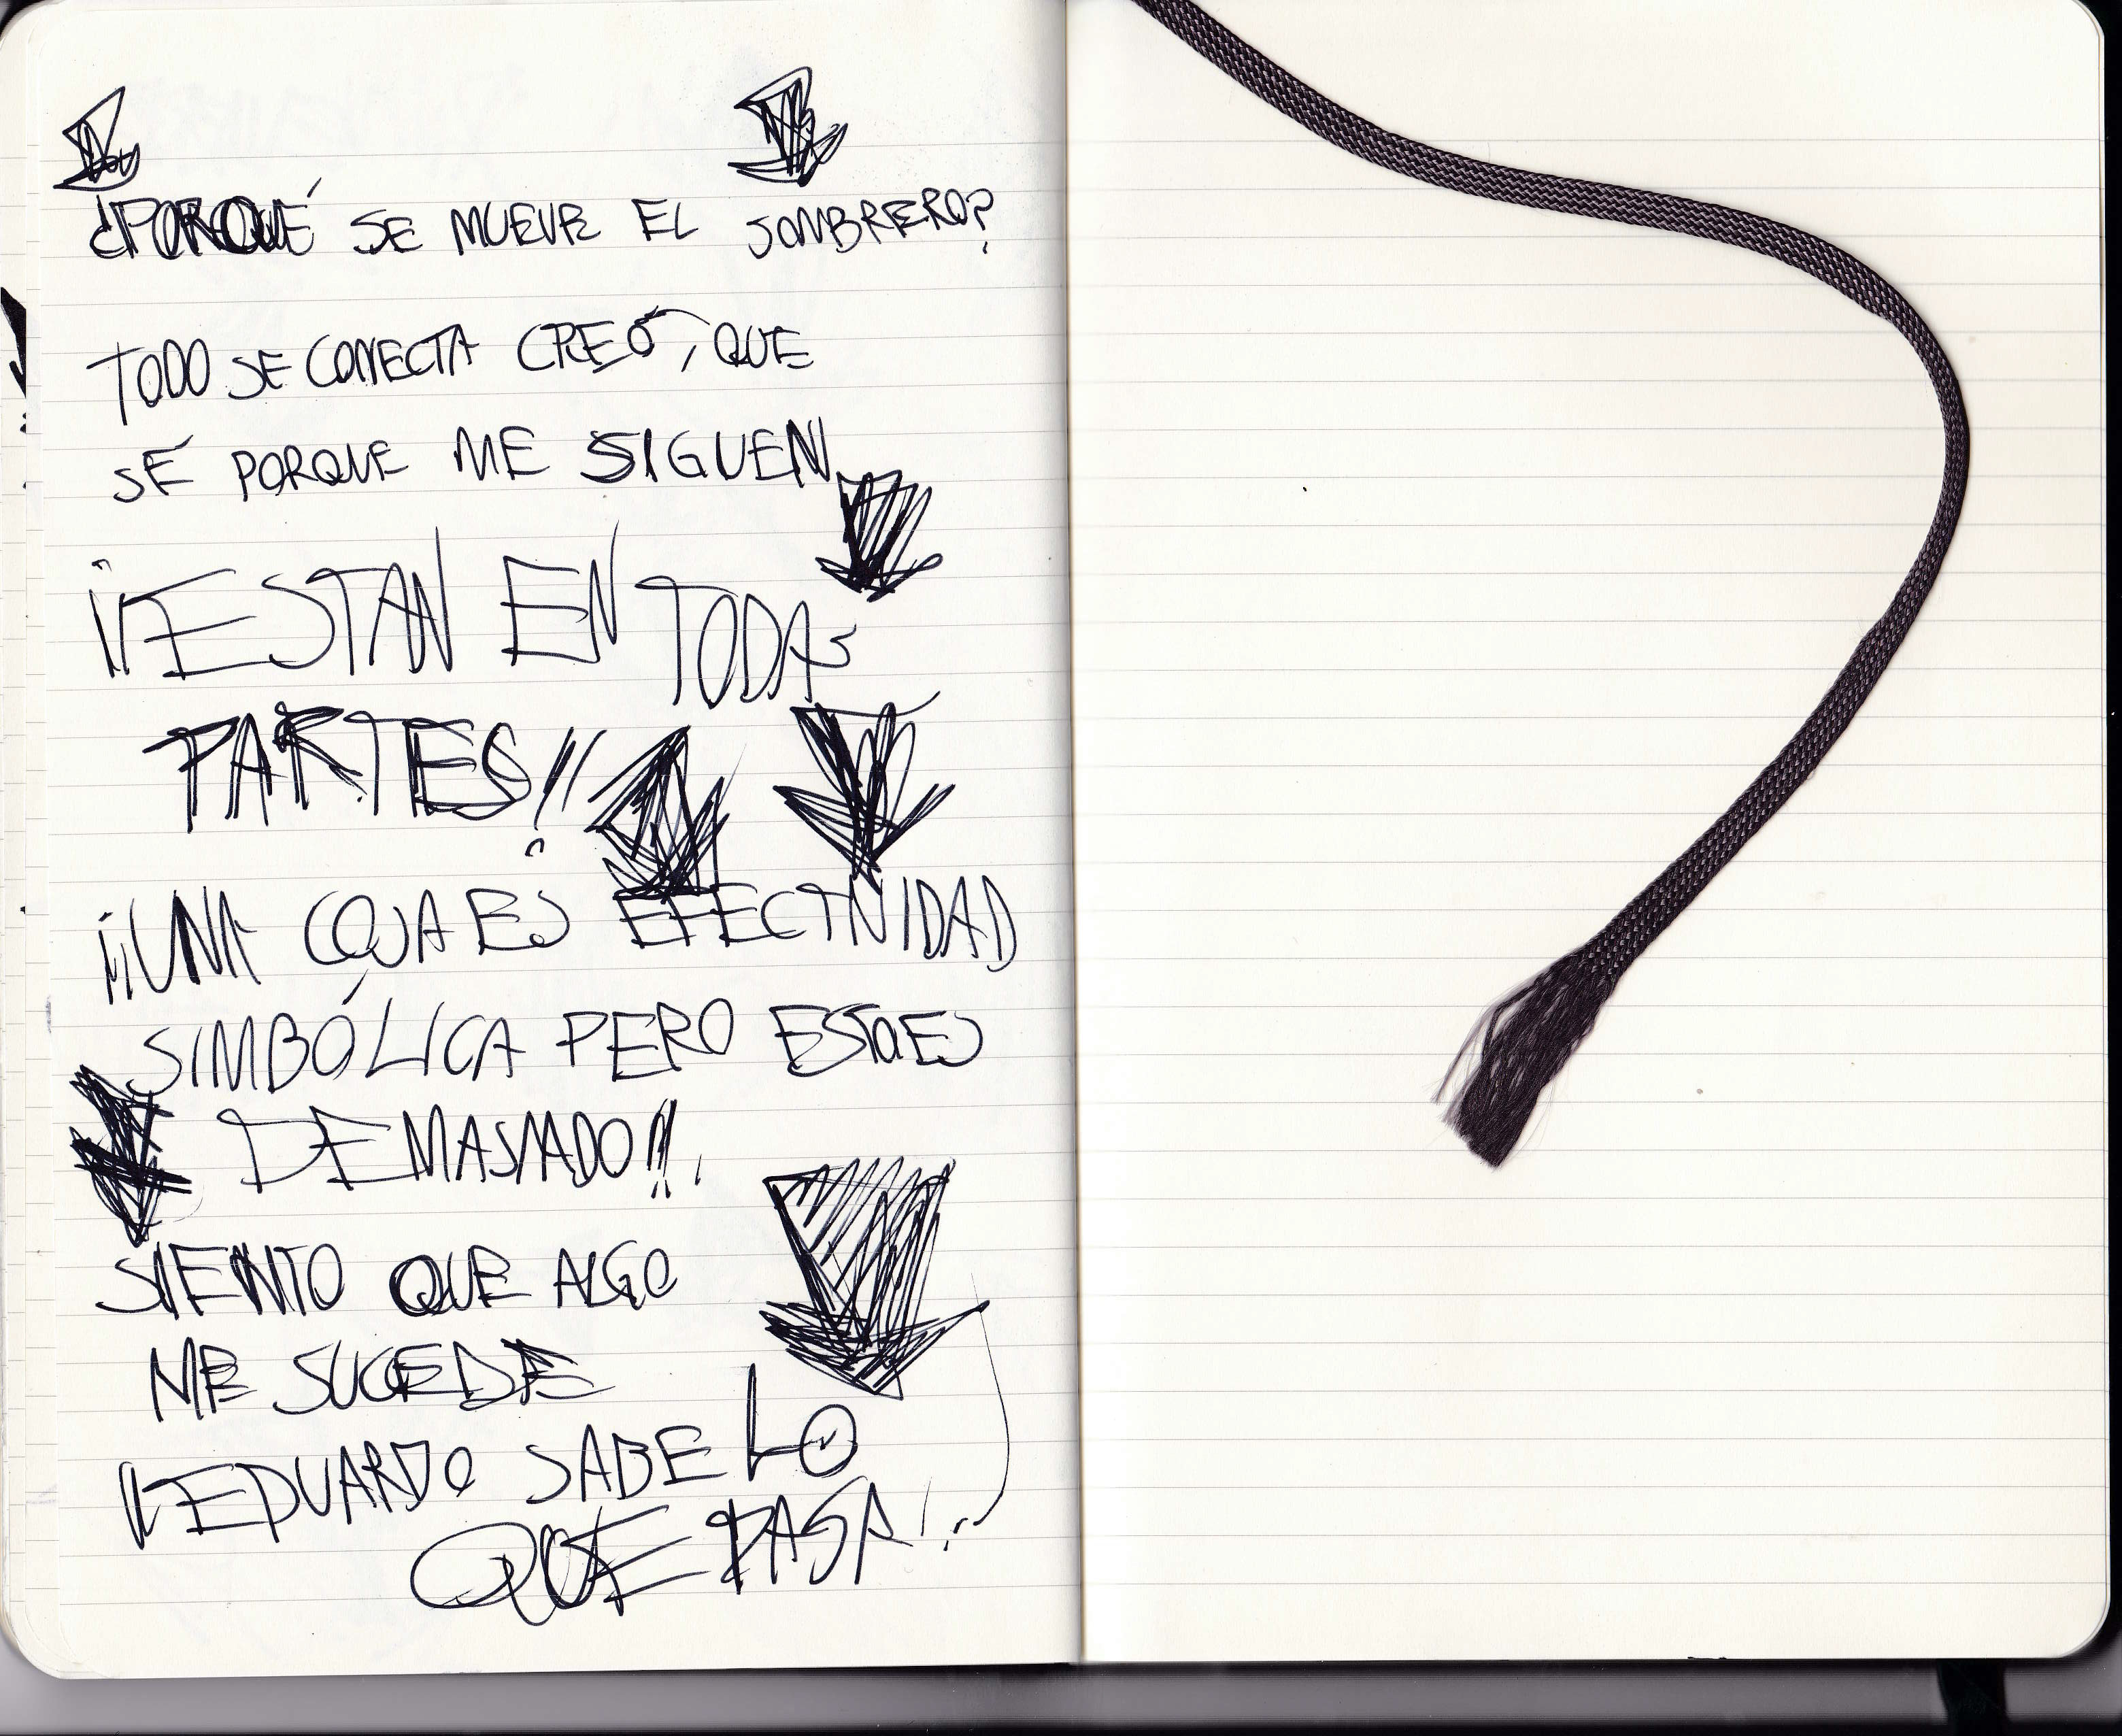 ¿PORQUÉ SE MUEVE EL SOMBRERO?
TODO SE CONECTA CREO, QUE
SÉ PORQUE ME SIGUEN
¡¡ESTAN EN TODAS
PARTES!!
¡¡UNA COSA ES EFECTIVIDAD
SIMBÓLICA PERO ESTO ES
DEMASIADO!!.
SIENTO QUE ALGO
ME SUCEDE
EDUARDO SABE LO
QUE PASA!.